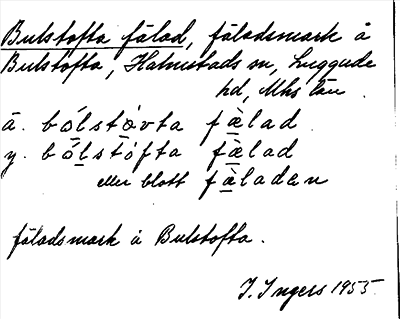 Bulstofta fälad, fäladsmark å
Bulstofta, Halmstads sn, Luggude
hd, Mhs län.
ä. bólstòvta fæ̀lad
y. bólstòfta fæ̀lad
eller blott fæ̀laden
fäladsmark å Bulstofta.
I. Ingers 1955.